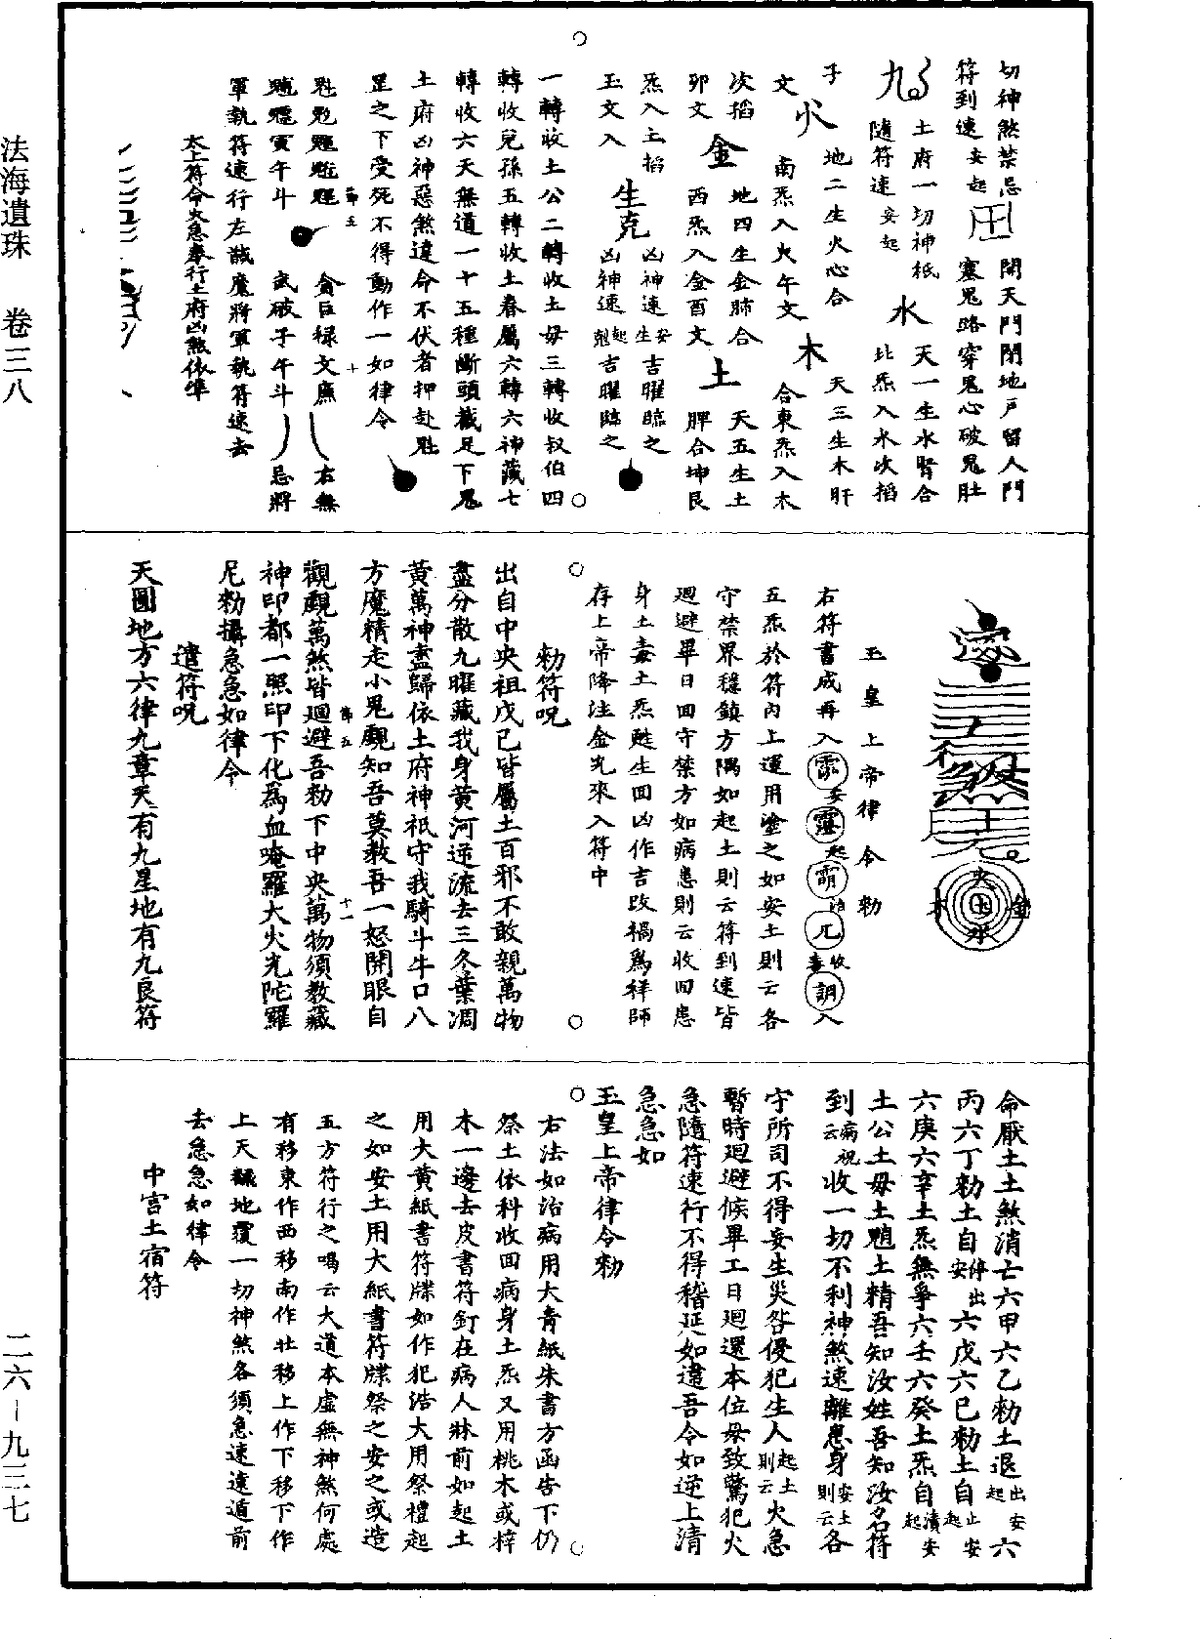 切神煞禁忌　開天門閉地戶留人門
符到速安起　塞鬼路穿鬼心破鬼肚
土府一切神祇　天一生水腎合
隨符速安起　水　北炁入水次搯
子　地二生火心合　天三生木肝
文　火　南炁入火午文　木　合東炁入木
次搯　金　地四生金肺合　土　天五生土
卯文　西炁入金酉文　脾合坤艮
炁入土搯　生克　凶神速安生吉曜臨之
玉文入　凶神速起剋吉曜臨之
一轉收土公二轉收土母三轉收叔伯四
轉收兒孫五轉收土眷屬六轉六神藏七
轉收六天無道一十五種斷頭截足下鬼
土府凶神惡煞違令不伏者押赴魁
罡之下受死不得動作一如律令
貪巨祿文廉　右無
寅午斗　武破子午斗　忌將
軍執符速行左誠魔將軍執符速去
太上符命火急奉行土府凶煞依準
玉皇上帝律令勑
右符書成再入
五炁於符內上運用塗之如安土則云各
守禁界穩鎮方隅如起土則云符到速皆
迴避畢日回守禁方如病患則云收回患
身土毒土炁甦生回凶作吉改禍為祥師
存上帝降注金光來入符中
勑符呪
出自中央祖戊己皆屬土百邪不敢親萬物
盡分散九曜藏我身黃河逆流去三冬葉凋
黃萬神盡歸依土府神祇守我騎斗牛口八
方魔精走小鬼覷知吾莫教吾一怒開眼自
觀覷萬煞皆迴避吾勑下中央萬物須教藏
神印都一照印下化為血唵羅大火光陀羅
尼勑攝急急如律令
遣符呪
天圓地方六律九章天有九星地有九良符
命厭土土煞消亡六甲六乙勑土退出起安六
丙六丁勑土自停出安六戊六己勑土自止起安
六庚六辛土炁無爭六壬六癸土炁自潰起安
土公土母土䰡土精吾知汝姓吾知汝名符
到病祝云收一切不利神煞速離患身安土則云各
守所司不得妄生災咎侵犯生人起土則云火急
暫時迴避候畢工日迴還本位毋致驚犯火
急隨符速行不得稽延如違吾令如逆上清
急急如
玉皇上帝律令勑
右法如治病用大青紙朱書方函告下仍
祭土依科收回病身土炁又用桃木或梓
木一邊去皮書符釘在病人牀前如起土
用大黃紙書符牒如作犯浩大用祭禮起
之如安土用大紙書符牒祭之安之或造
五方符行之喝云大道本虛無神煞何處
有移東作西移南作北移上作下移下作
上天翻地覆一切神煞各須急速遠遁前
去急急如律令
中宮土宿符
法海遺珠　卷三八　二六－九三七